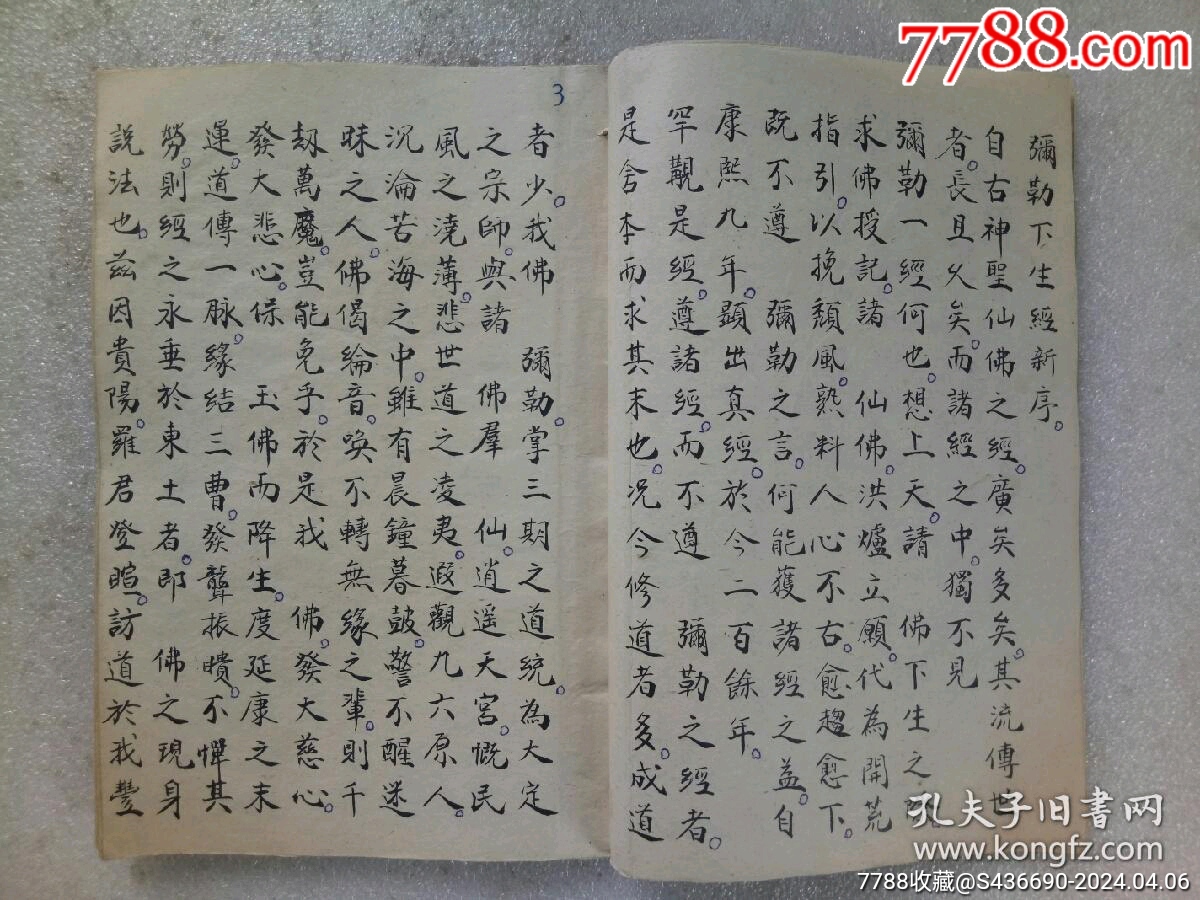 7788.com
彌勒下生經新序。
自古神聖仙佛之經。廣矣多矣。其流傳世
者。長且久矣。而諸經之中。獨不見
彌勒一經何也。想上天。請 佛下生之
求佛授記。諸 仙佛。洪爐立願。代為開荒
指引。以挽頹風。熟料人心不古。愈趨愈下。
既不遵 彌勒之言。何能獲諸經之益。自
康熙九年。顯出真經。於今二百餘年。
罕覯是經。遵諸經。而不遵 彌勒之經者。
是舍本而求其末也。况今修道者多。成道
3
者少。我佛 彌勒。掌三期之道統。為大定
之宗師。與諸 佛羣 仙。逍遥天宫。慨民
風之澆薄。悲世道之凌夷。遐觀九六原人。
沉淪苦海之中。雖有晨鐘暮鼓。警不醒迷
昧之人。佛偈綸音。喚不轉無緣之輩。則千
刼萬魔。豈能免乎。於是我 佛。發大慈心。
發大悲心。保 玉佛而降生。度延康之末
運。道傳一脉。緣結三曹。發聾振聵。不憚其
勞。則經之永垂於東土者。即 佛之現身
說法也。兹因貴陽。羅君登暄。訪道於我豐
孔夫子旧書网
www.kongfz.com
7788收藏@S436690-2024.04.06